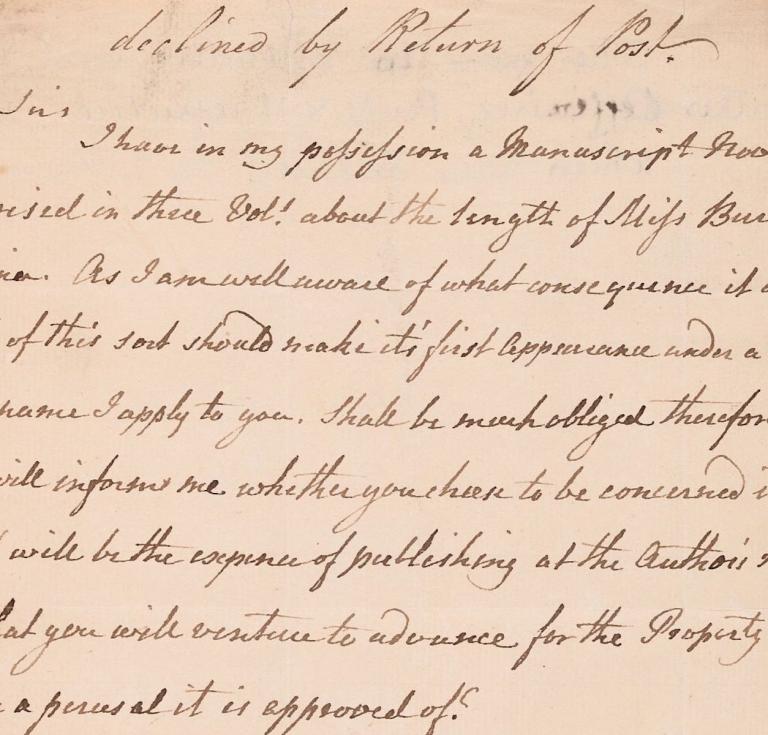 declined by Return of Post.
Sirs
I have in my possession a Manuscript Nov
rised in three Vol.s about the length of Miss Bur
na. As I am well aware of what consequence it
of this sort should make it's first appearance under a
name I apply to you. Shall be much obliged therefor
will inform me whether you chose to be concerned i
will be the expence of publishing at the Author's
at you will venture to advance for the Property
a perusal it is approved of?